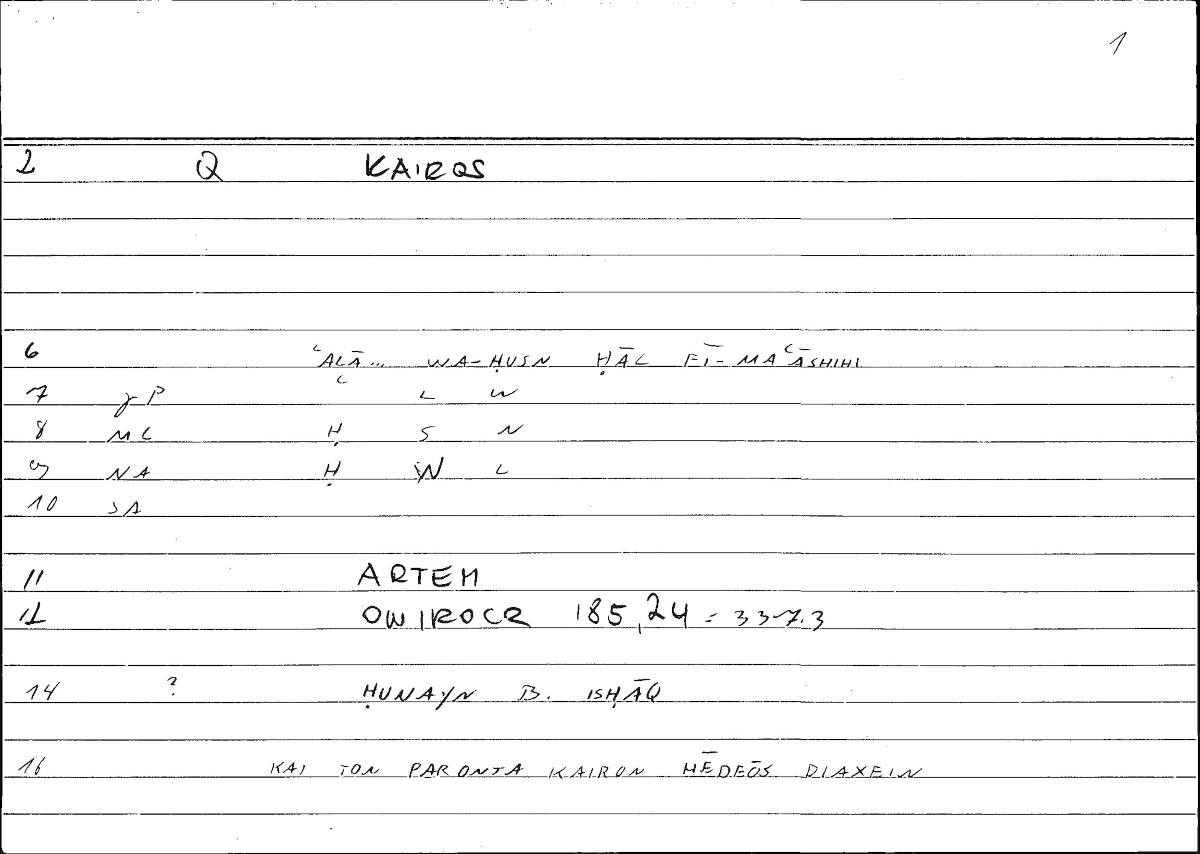 1
2 Q KAIROS
6 ʿALĀ... WA-ḤUSN ḤĀL FĪ- MAʿĀSHIHI
7 gP ʿ L W
8 ML Ḥ S N
9 NA Ḥ W L
10 SA
11 ARTEM
12 OWIROCR 185,24 = 337.3
14 ? ḤUNAYN B. ISḤĀQ
16 KAI TON PARONTA KAIRON HĒDEŌS DIAXEIN